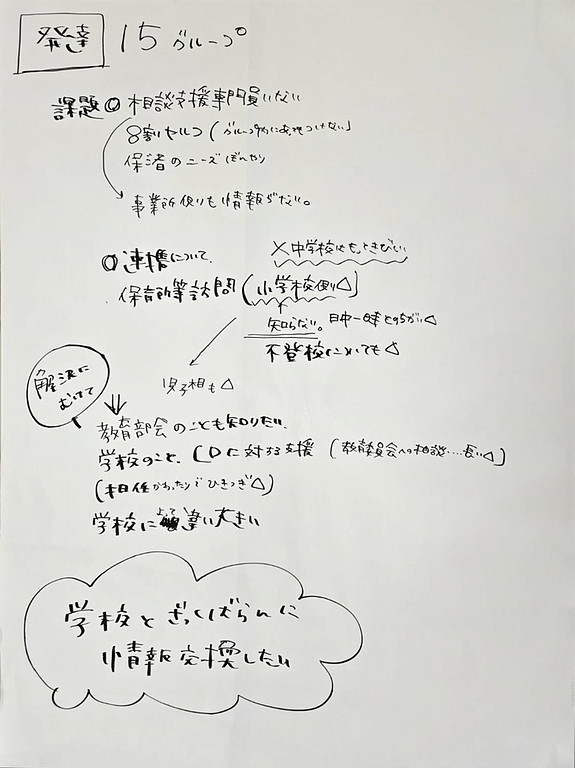 発達 15グループ
課題 ◎ 相談支援専門員いない
8割セルフ(グループ
保護者のニーズぼんやり
事業所側も情報
◎連携について
×中学校はもっときびしい
保育所等訪問(小学校側△)
知らない。日中一時とのちがい△
不登校についても△
児相も△
解決にむけて
教育部会のことも知りたい
学校のこと、LDに対する支援(教育委員会への相談…長い△)
(担任かわったりでひきつぎ△)
学校によって違い大きい
学校とざっくばらんに
情報交換したい